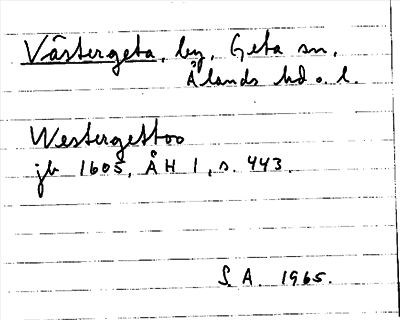 Västergeta, by, Geta sn,
Ålands hd o. l.
Westergettoo
jb 1605, ÅH 1, s. 443.
S. A. 1965.